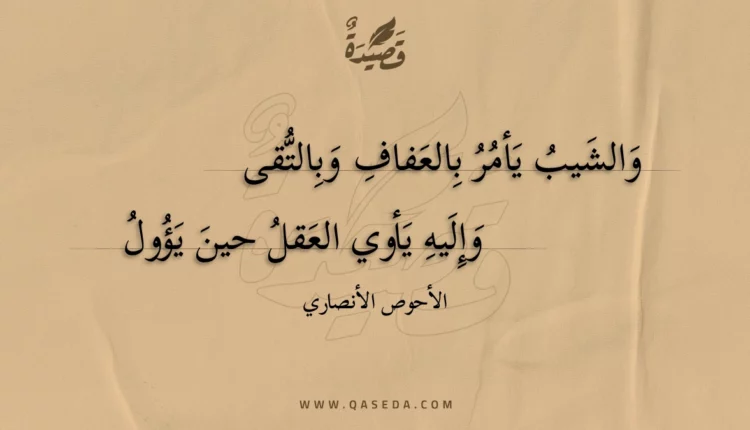 قَصِيْدَةٌ
وَالشَيبُ يَأمُرُ بِالعَفافِ وَبِالتُّقى
وَإِلَيهِ يَأوي العَقلُ حينَ يَؤُولُ
الأحوص الأنصاري
WWW.QASEDA.COM